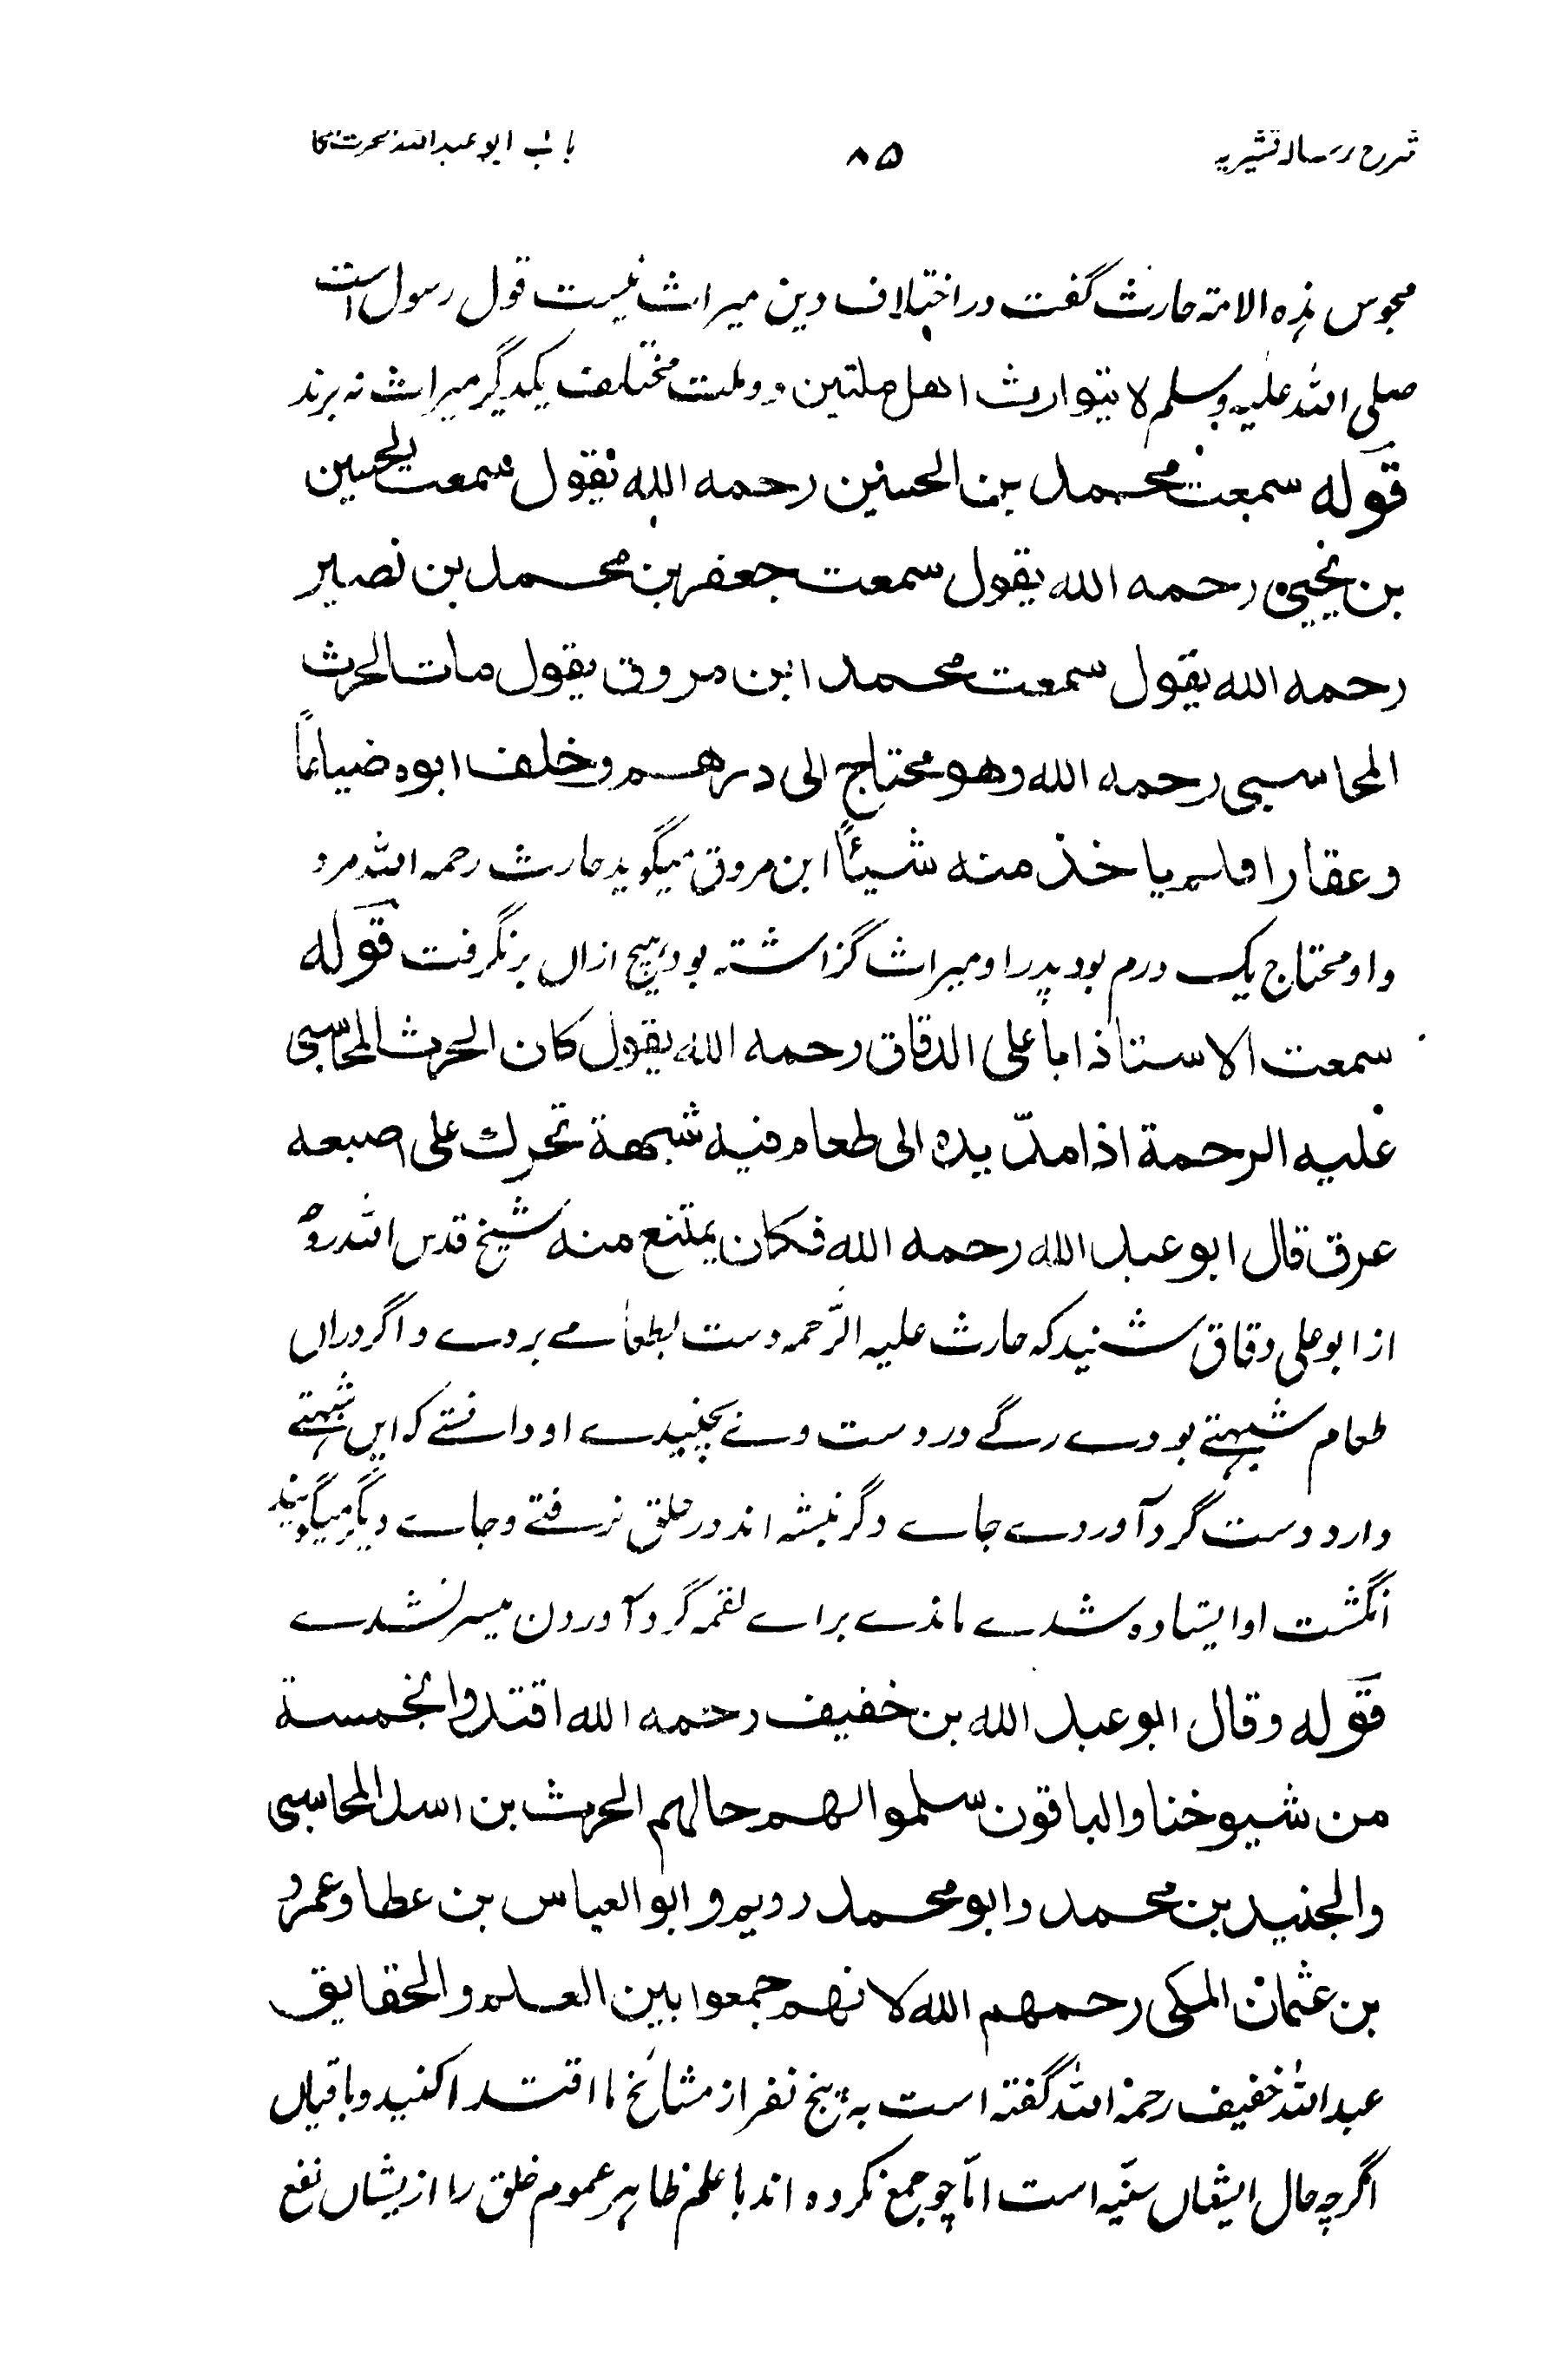 شرح رسالہ قشیریہ ۸۵ باب ابو عبداللہ الحرث المحا
مجوس ہذہ الامتہ حارث گفت در اختلاف دین میراث نیست قول رسول است
صلی اللہ علیہ وسلم لا یتوارث اھل ملتین دو ملت مختلف یکدیگر میراث نہ برند
قولہ سمعت محمد بن الحسین رحمہ اللہ یقول سمعت الحسین
بن یحیی رحمہ اللہ یقول سمعت جعفر بن محمد بن نصیر
رحمہ اللہ یقول سمعت محمد ابن مروق یقول مات الحرث
المحاسبی رحمہ اللہ وھو محتاج الی درھم وخلف ابوہ ضیاعاً
وعقارا فلم یاخذ منہ شیئاً ابن مروق میگوید حارث رحمہ اللہ مرد
واو محتاج یک درم بود پدر او میراث گزاشتہ بود ہیچ ازاں برنگرفت قولہ
سمعت الاستاذ ابا علی الدقاق رحمہ اللہ یقول کان الحرث المحاسبی
علیہ الرحمة اذا مدّ یدہ الی طعام فیہ شبھة تحرک علی اصبعہ
عرق قال ابو عبد اللہ رحمہ اللہ فکان یمتنع منہ شیخ قدس اللہ روحہ
از ابو علی دقاق شنید کہ حارث علیہ الرّحمہ دست بطعامے بردے و اگر دراں
طعام شبہتے بودے رگے در دست وے بجنبیدے او دانستے کہ ایں شبہتے
دارد دست گرد آوردے جاے دگر نبشتہ اند در حلق نرفتے وجاے دیگر میگویند
انگشت او ایستادہ شدے ماندے براے لقمہ گرد آوردن میسر نشدے
قولہ وقال ابو عبد اللہ بن خفیف رحمہ اللہ اقتدوا بخمسة
من شیوخنا والباقون سلموا الھم حالھم الحرث بن اسد المحاسبی
والجنید بن محمد وابو محمد رویم و ابو العباس بن عطا وعمرو
بن عثمان المکی رحمھم اللہ لانھم جمعوا بین العلم والحقایق
عبداللہ خفیف رحمۃ اللہ گفتہ است بہ پنج نفر از مشائخ ما اقتدا کنید و باقیاں
اگرچہ حال ایشاں سنیّہ است امّا چو جمع نکردہ اند با علم ظاہر عموم خلق را ازیشاں نفع